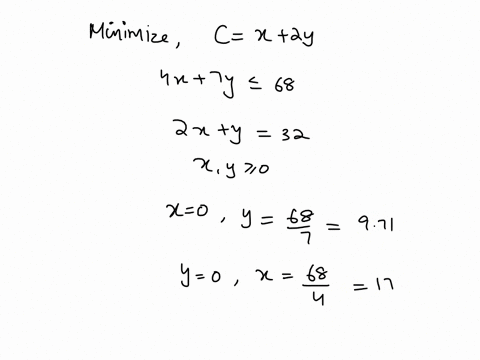 Minimize, C = x + 2y
4x + 7y ≤ 68
2x + y = 32
x, y ≥ 0
x=0, y = 68/7 = 9.71
y=0, x = 68/4 = 17